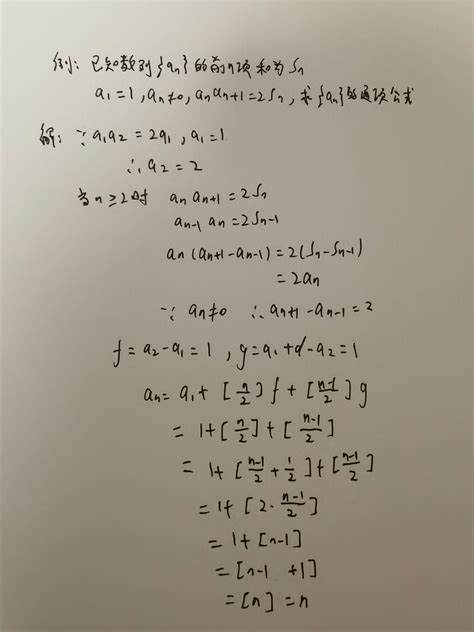 例: 已知数列{aₙ}的前n项和为Sₙ
a₁=1, aₙ≠0, aₙaₙ₊₁=2Sₙ, 求{aₙ}的通项公式
解: ∵a₁a₂=2a₁, a₁=1
∴a₂=2
当n≥2时 aₙaₙ₊₁=2Sₙ
aₙ₋₁aₙ=2Sₙ₋₁
aₙ(aₙ₊₁-aₙ₋₁)=2(Sₙ-Sₙ₋₁)
=2aₙ
∵aₙ≠0 ∴aₙ₊₁-aₙ₋₁=2
f=a₂-a₁=1, g=a₁+d-a₂=1
aₙ=a₁+[n/2]f+[(n-1)/2]g
=1+[n/2]+[(n-1)/2]
=1+[(n-1)/2+1/2]+[(n-1)/2]
=1+[2·(n-1)/2]
=1+[n-1]
=[n-1+1]
=[n]=n